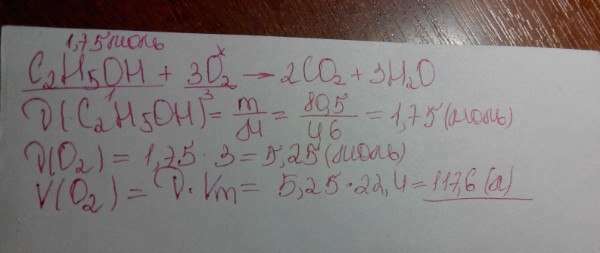 1,75 моль x
C₂H₅OH + 3O₂ → 2CO₂ + 3H₂O
1 3
ν(C₂H₅OH) = m/M = 80,5/46 = 1,75 (моль)
ν(O₂) = 1,75 · 3 = 5,25 (моль)
V(O₂) = ν · Vm = 5,25 · 22,4 = 117,6 (л)